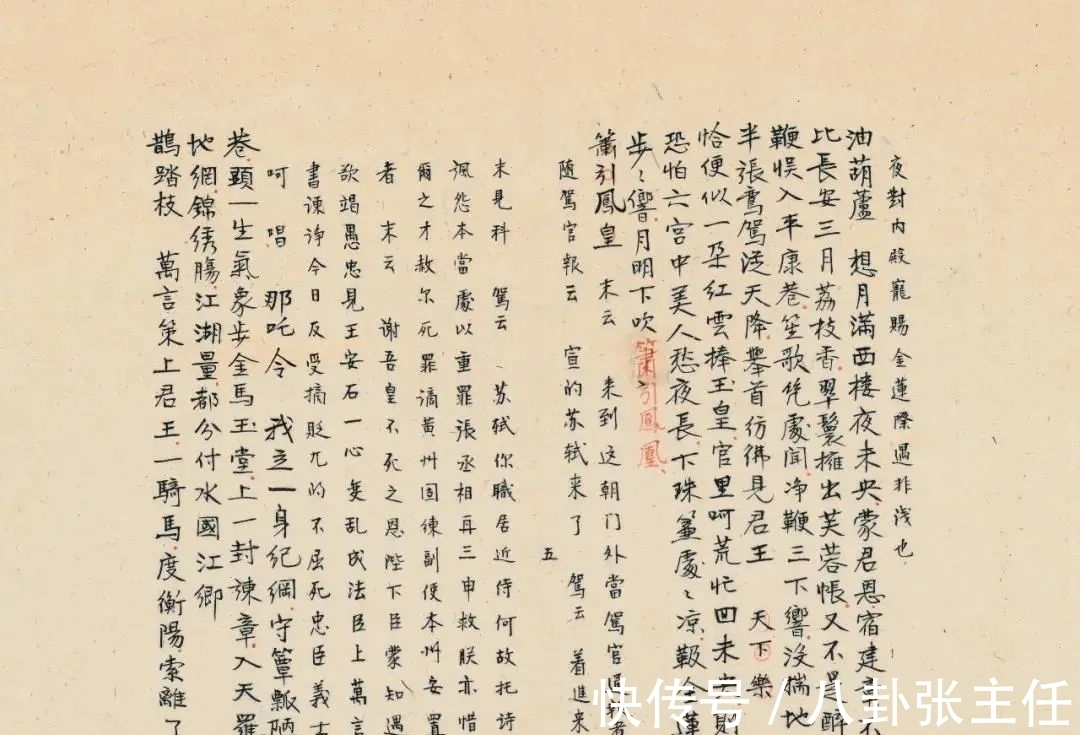 夜對内殿寵賜金蓮際遇非淺也
油葫蘆 想月滿西楼夜未央蒙君恩宿建章不
比長安三月荔枝香翠鬟擁出芙蓉帳又不是醉
鞭悞入平康巷笙歌凭處闻净鞭三下響没揣地
半張鸞駕從天降舉首彷彿見君王 天下樂
恰便似一朶紅雲捧玉皇官里呵荒忙回未央則
恐怕六宫中美人愁夜長下珠簾處々凉靸金蓮
步々響月明下吹簫引鳳凰
簫引鳳皇 末云 来到这朝门外當駕官通報者
随駕官報云 宣的苏轼来了 駕云 着進来
五
末見科 駕云 苏轼你職居近侍何故托诗
諷怨本當處以重罪張丞相再三申救朕亦惜
爾之才赦尔死罪谪黄州团練副使本州安置
者 末云 谢吾皇不死之恩陛下臣蒙知遇
欲竭愚忠見王安石一心変乱成法臣上萬言
書谏诤今日反受摘貶兀的不屈死忠臣義士
呵 唱 那吒令 我立一身纪綱守簞瓢陋
巷顯一生氣象步金馬玉堂上一封諫章入天羅
地網錦綉腸江湖量都分付水國江鄉
鵲踏枝 萬言策上君王一騎馬度衡陽索離了
快传号/八卦张主任